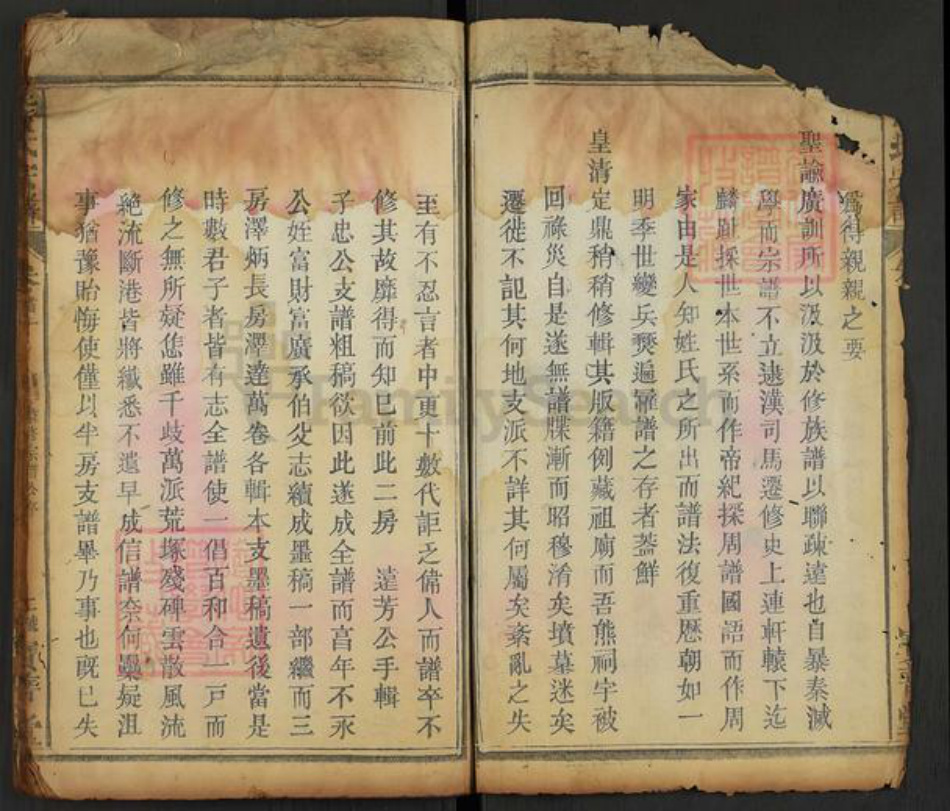 為得親親之要
聖諭廣訓所以汲汲於修族譜以聯疎遠也自暴秦滅
學而宗譜不立逮漢司馬遷修史上連軒轅下迄
麟趾採世本世系而作帝紀探周譜國語而作周
家由是人知姓氏之所出而譜法復重歷朝如一
明季世變兵燹遍罹譜之存者葢鮮
皇清定鼎稍稍修輯其版籍例藏祖廟而吾熊祠宇被
回祿災自是遂無譜牒漸而昭穆淆矣墳墓迷矣
遷徙不記其何地支派不詳其何屬矣紊亂之失
至有不忍言者中更十數代詎乏偉人而譜卒不
修其故靡得而知巳前此二房 遠芳公手輯
子忠公支譜粗稿欲因此遂成全譜而富年不永
公姪富財富廣承伯父志續成墨稿一部繼而三
房澤炳長房澤達萬卷各輯本支墨稿遺後當是
時數君子者皆有志全譜使一倡百和合一戸而
修之無所疑怠雖千歧萬派荒塚殘碑雲散風流
絶流斷港皆將纎悉不遺早成信譜奈何纍疑沮
事猶豫貽悔使僅以半房支譜畢乃事也旣巳失
FamilySearch